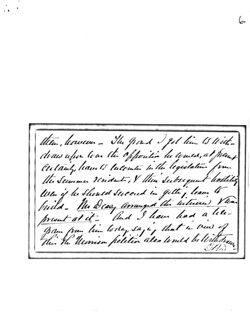 6
them, however - The ground I got him to with-
draw upon was the opposition he would, at present
certainly have to encounter in the legislature from
the summer residents, & their subsequent hostility
even if he should succeed in getting leave to
build. Mr Deasy arranged the interview & was
present at it - And I have had a tele-
gram from him today saying that in view of
this the Morrison petition also would be withdrawn